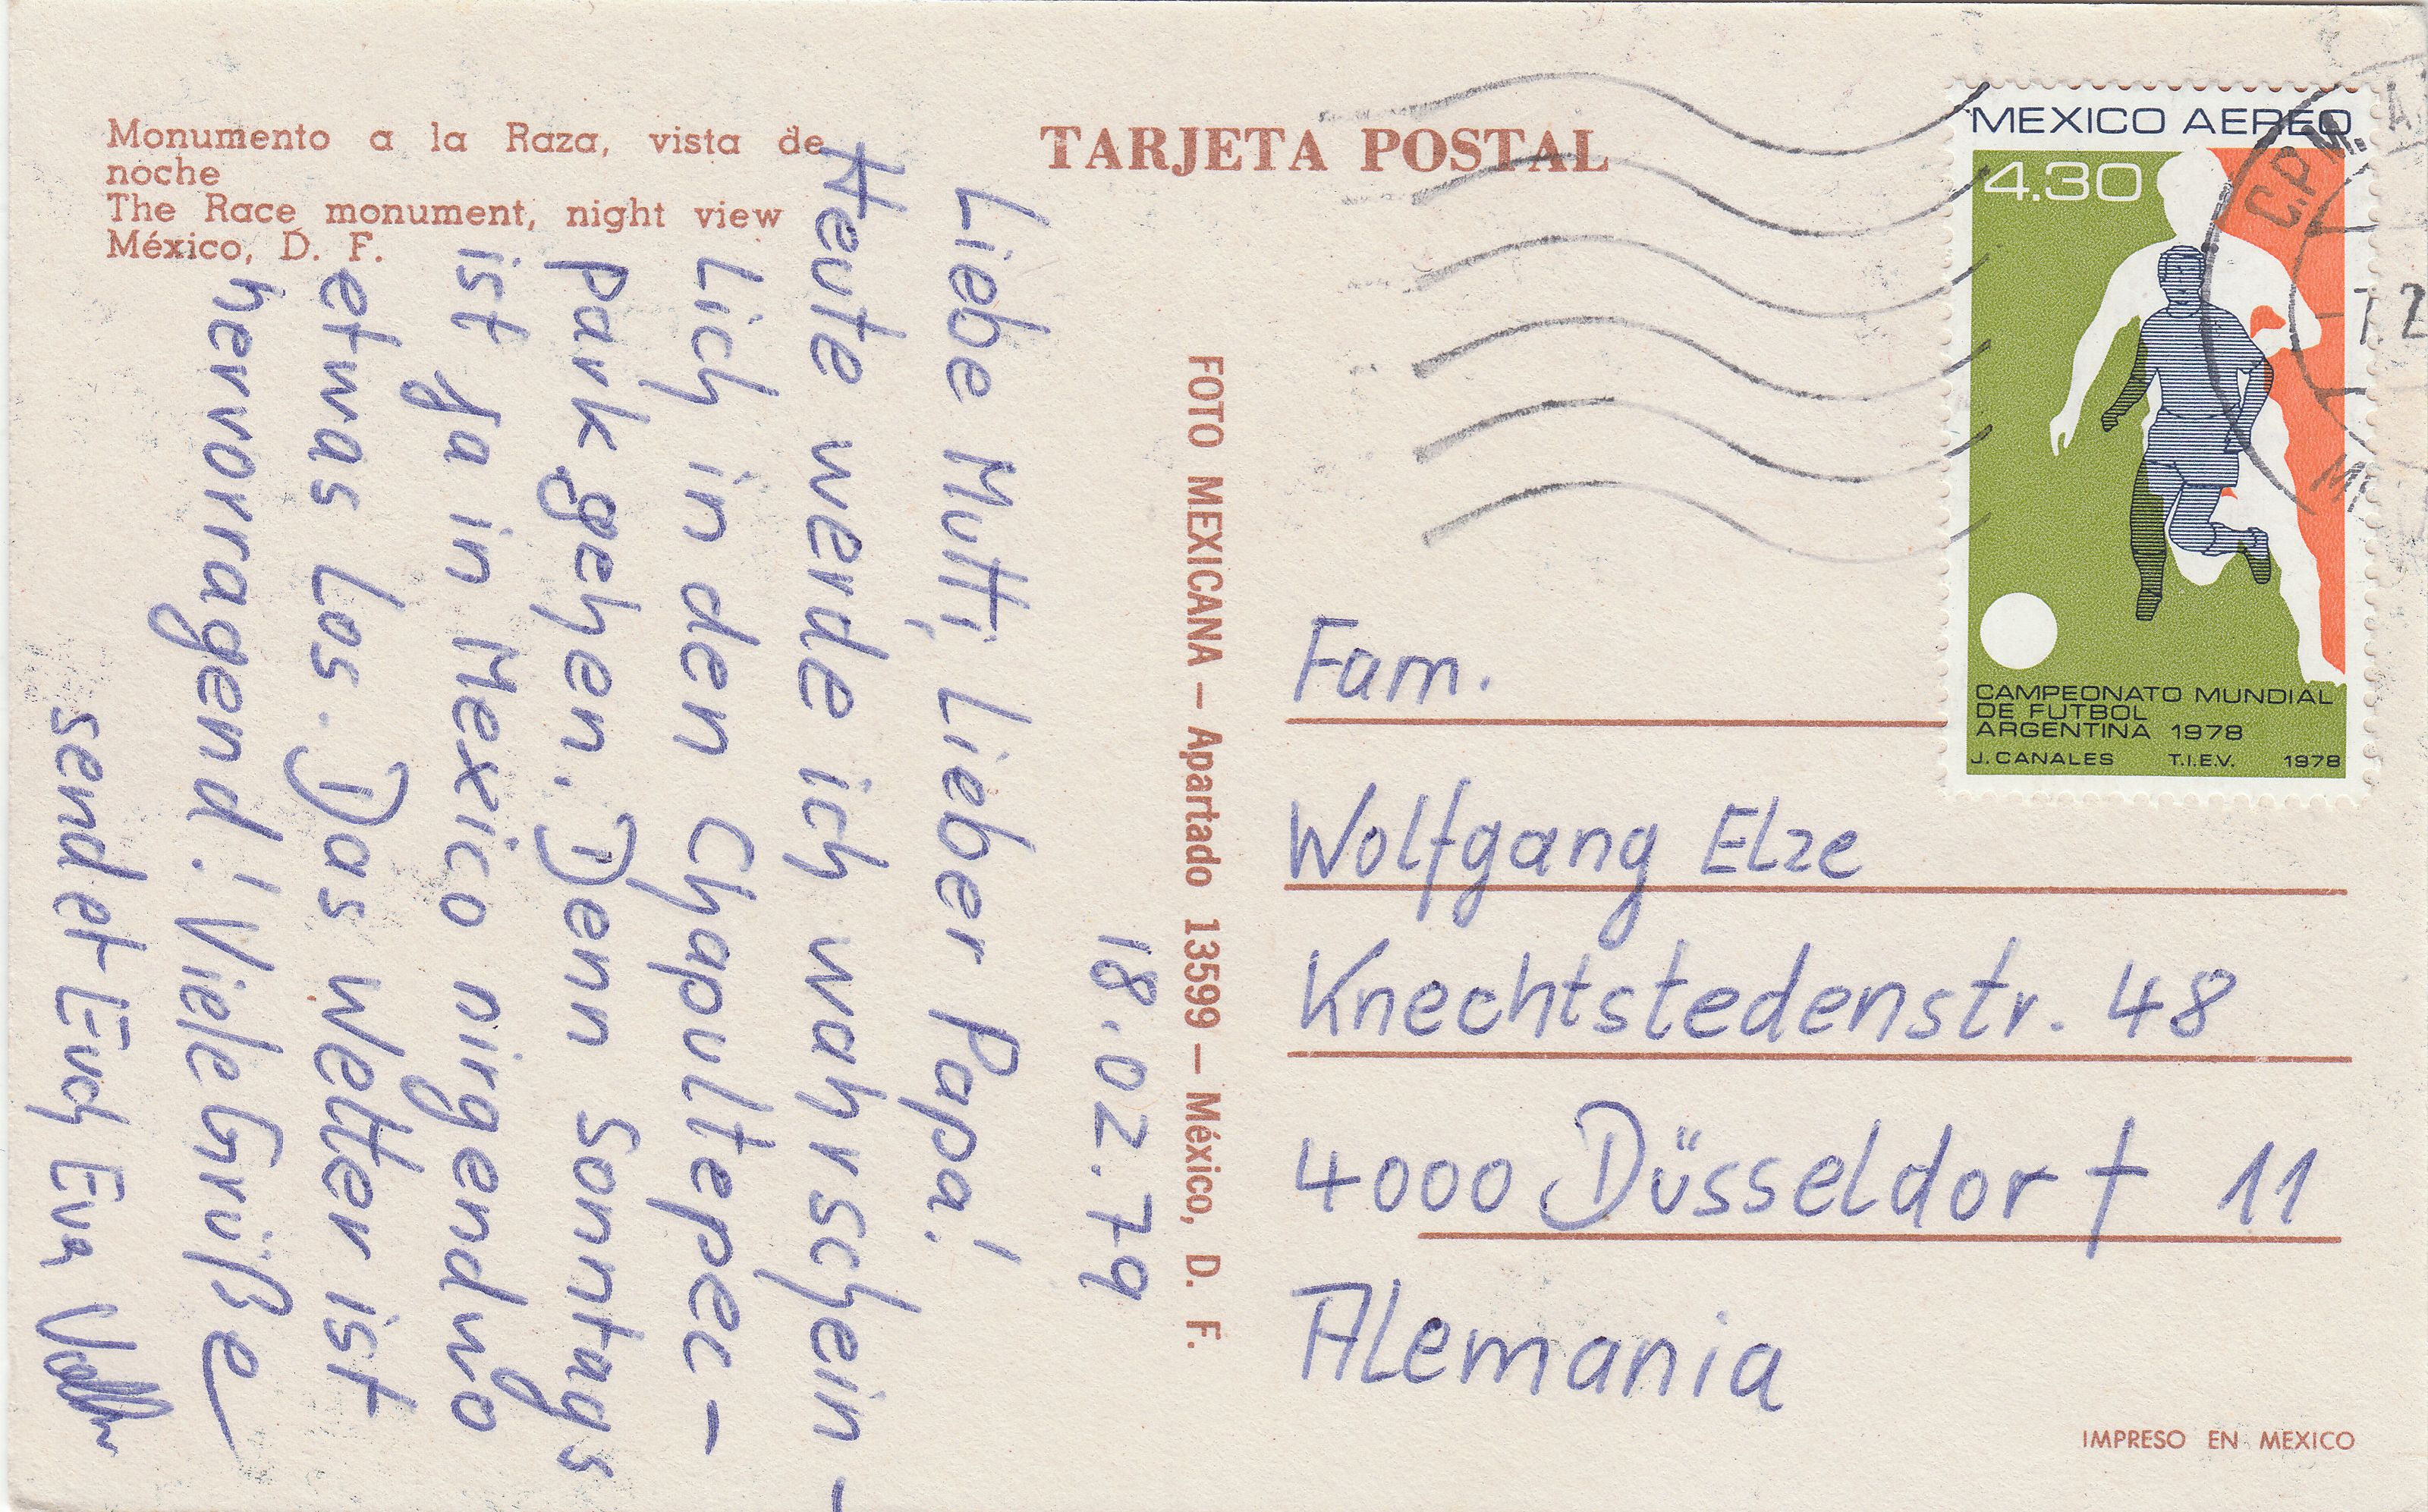 Monumento a la Raza, vista de
noche
The Race monument, night view
México, D. F.
TARJETA POSTAL
18.02.79
Liebe Mutti, Lieber Papa!
Heute werde ich wahrschein-
lich in den Chapultepec-
park gehen. Denn Sonntags
ist ja in Mexico nirgendwo
etwas los. Das Wetter ist
hervorragend! Viele Grüße
sendet Euch Eva
FOTO MEXICANA – Apartado 13599 – México, D. F.
MEXICO AEREO
4.30
CAMPEONATO MUNDIAL
DE FUTBOL
ARGENTINA 1978
J. CANALES T.I.E.V. 1978
Fam.
Wolfgang Elze
Knechtstedenstr. 48
4000 Düsseldorf 11
Alemania
IMPRESO EN MEXICO